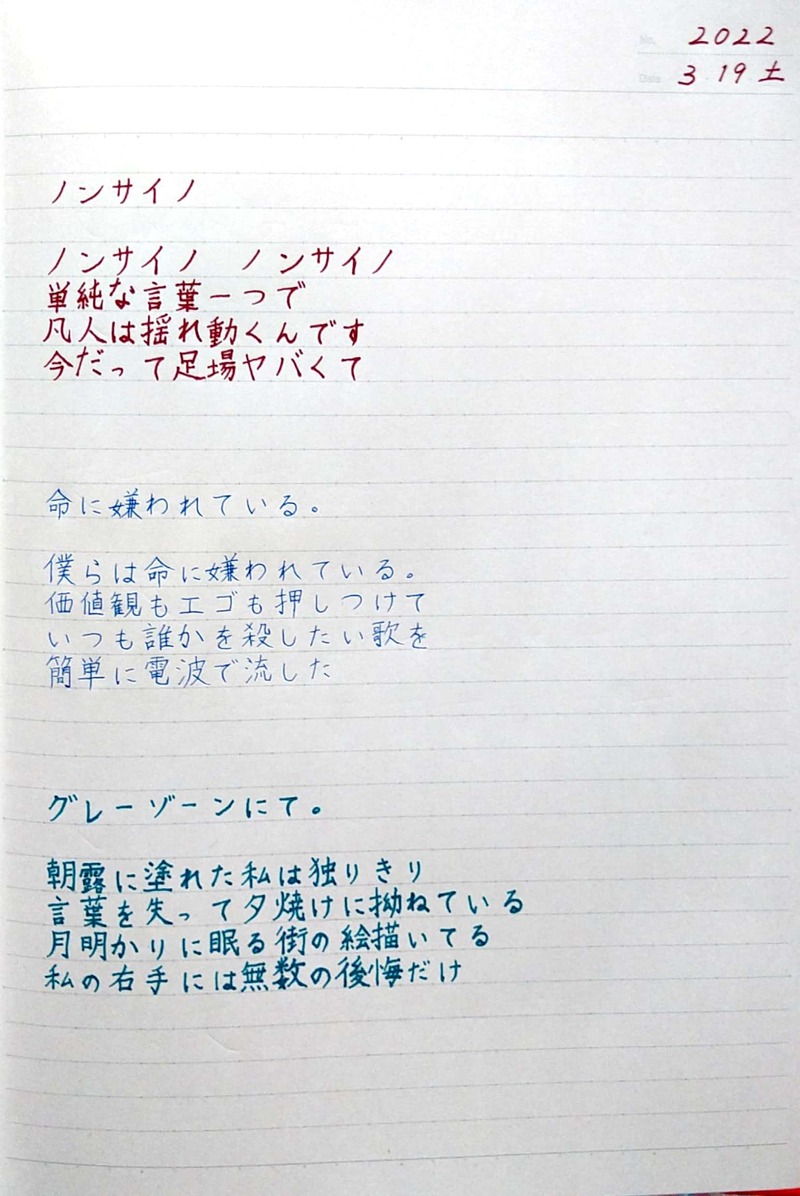 No. 2022
Date 3 19 土
ノンサイノ
ノンサイノ ノンサイノ
単純な言葉一つで
凡人は揺れ動くんです
今だって足場ヤバくて
命に嫌われている。
僕らは命に嫌われている。
価値観もエゴも押しつけて
いつも誰かを殺したい歌を
簡単に電波で流した
グレーゾーンにて。
朝露に塗れた私は独りきり
言葉を失って夕焼けに拗ねている
月明かりに眠る街の絵描いてる
私の右手には無数の後悔だけ